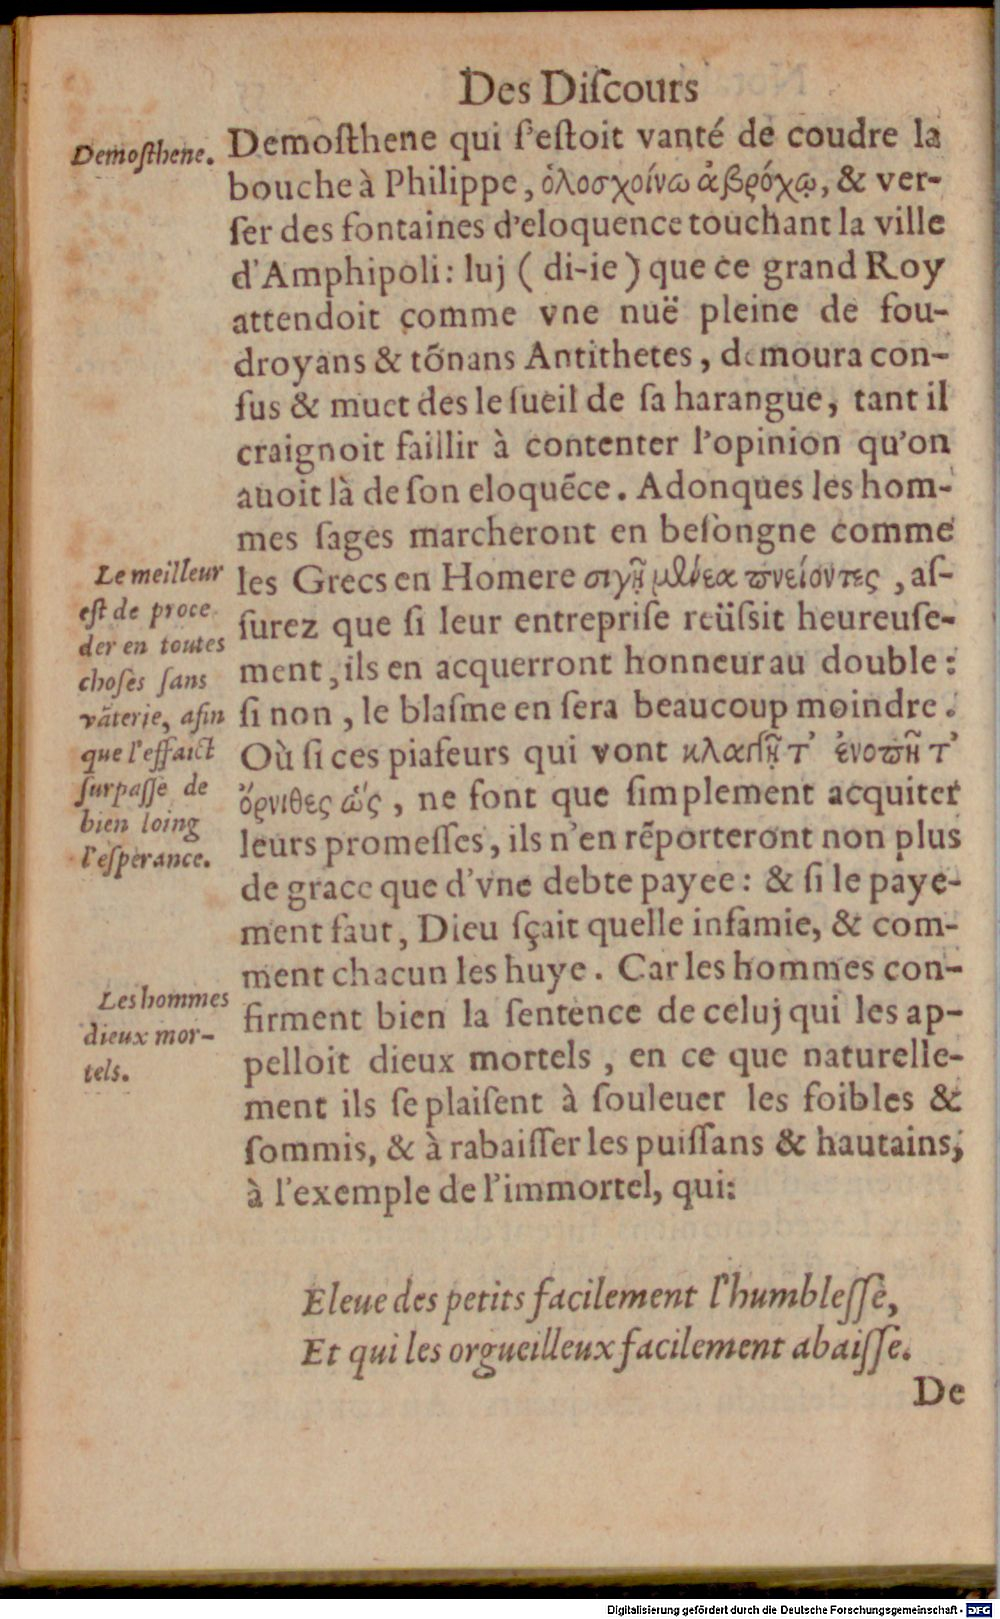 Des Diſcours
Demoſthene.
Demoſthene qui ſ'eſtoit vanté de coudre la
bouche à Philippe, ὁλοσχοίνω ἀβρόχῳ, & ver-
ſer des fontaines d'eloquence touchant la ville
d'Amphipoli: luj ( di-ie ) que ce grand Roy
attendoit comme vne nuë pleine de fou-
droyans & tõnans Antithetes, demoura con-
fus & muet des le ſueil de ſa harangue, tant il
craignoit faillir à contenter l'opinion qu'on
auoit là de ſon eloquẽce. Adonques les hom-
mes ſages marcheront en beſongne comme
les Grecs en Homere σιγῇ μένεα πνείοντες, aſ-
ſurez que ſi leur entrepriſe reüſsit heureuſe-
ment, ils en acquerront honneur au double:
ſi non, le blaſme en ſera beaucoup moindre.
Où ſi ces piafeurs qui vont κλαγγῇ τ' ἐνοπῆ τ'
ὄρνιθες ὥς, ne font que ſimplement acquiter
leurs promeſſes, ils n'en rẽporteront non plus
de grace que d'vne debte payee: & ſi le paye-
ment faut, Dieu ſçait quelle infamie, & com-
ment chacun les huye. Car les hommes con-
firment bien la ſentence de celuj qui les ap-
pelloit dieux mortels, en ce que naturelle-
ment ils ſe plaiſent à ſouleuer les foibles &
ſommis, & à rabaiſſer les puiſſans & hautains,
à l'exemple de l'immortel, qui:
Le meilleur
eſt de proce
der en toutes
choſes ſans
vãterie, afin
que l'effaict
ſurpaſſe de
bien loing
l'eſperance.
Les hommes
dieux mor-
tels.
Eleue des petits facilement l'humbleſſe,
Et qui les orgueilleux facilement abaiſſe.
De
Digitalisierung gefördert durch die Deutsche Forschungsgemeinschaft - DFG